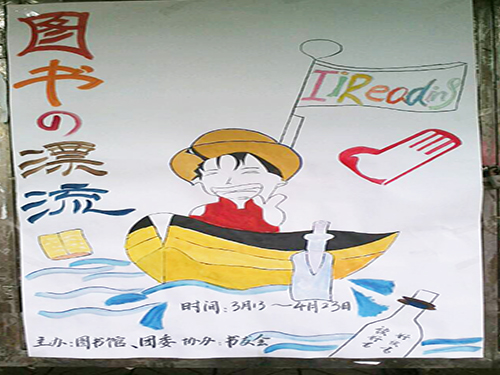 图书の漂流
IiReading
时间:3月13~4月23日
主办:图书馆、团委 协办:书友会